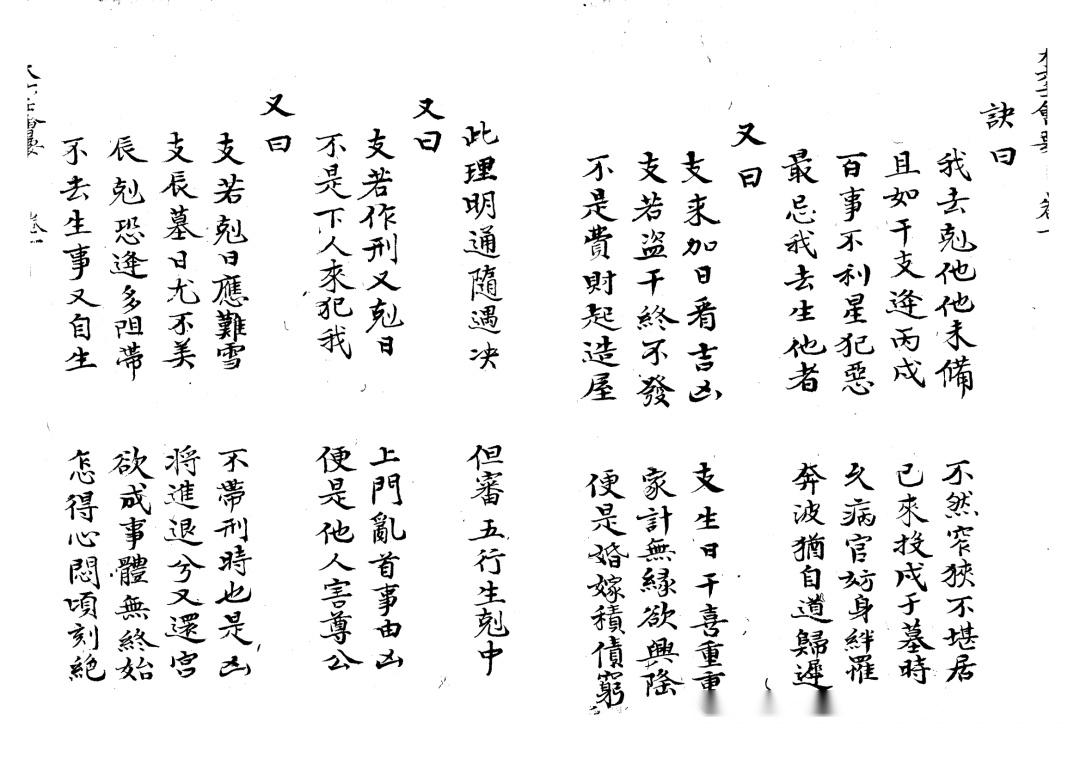 訣曰
我去剋他他未備　不然窄狹不堪居
且如干支逢丙戌　已來投戌于墓時
百事不利星犯惡　久病官妨身絆羅
最忌我去生他者　奔波猶自道歸遲
又曰
支來加日看吉凶　支生日干喜重重
支若盜干終不發　家計無緣欲興隆
不是費財起造屋　便是婚嫁積債窮
此理明通隨遇决　但審五行生剋中
又曰
支若作刑又剋日　上門亂首事由凶
不是下人來犯我　便是他人害尊公
又曰
支若剋日應難雪　不帶刑時也是凶
支辰墓日尤不美　將進退兮又還宮
辰剋恐逢多阻滯　欲成事體無終始
不去生事又自生　怎得心悶頃刻絕